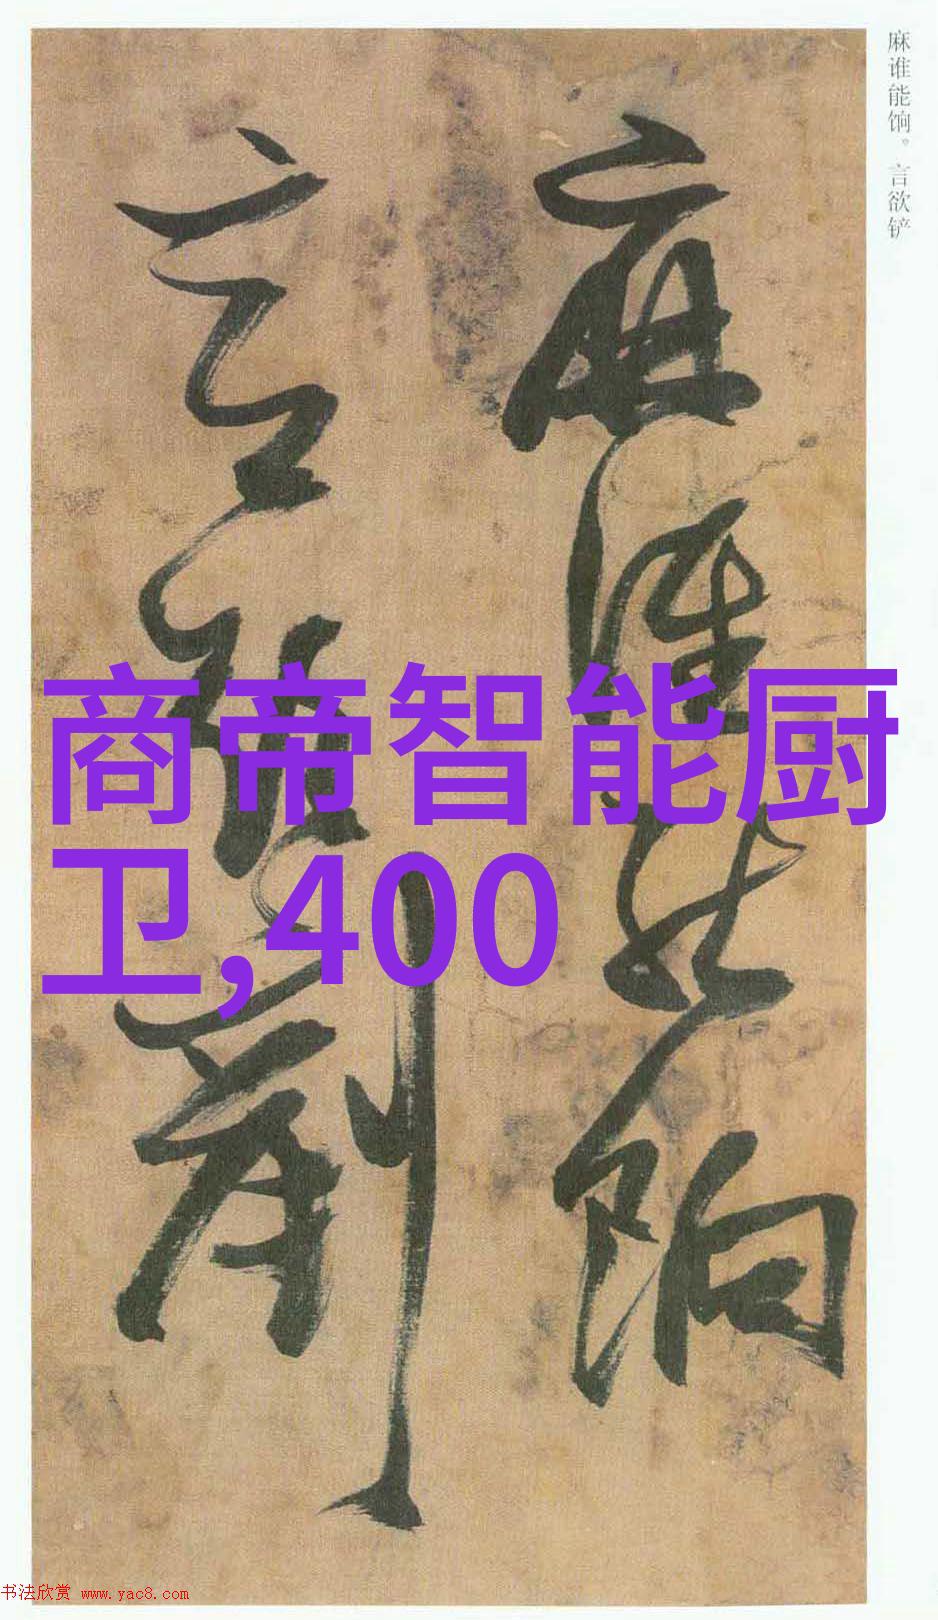 麻谁能饷。言欲铲
麻谁能饷
言欲剷
商帝智能厨
卫,400
书法欣赏 www.yac8.com